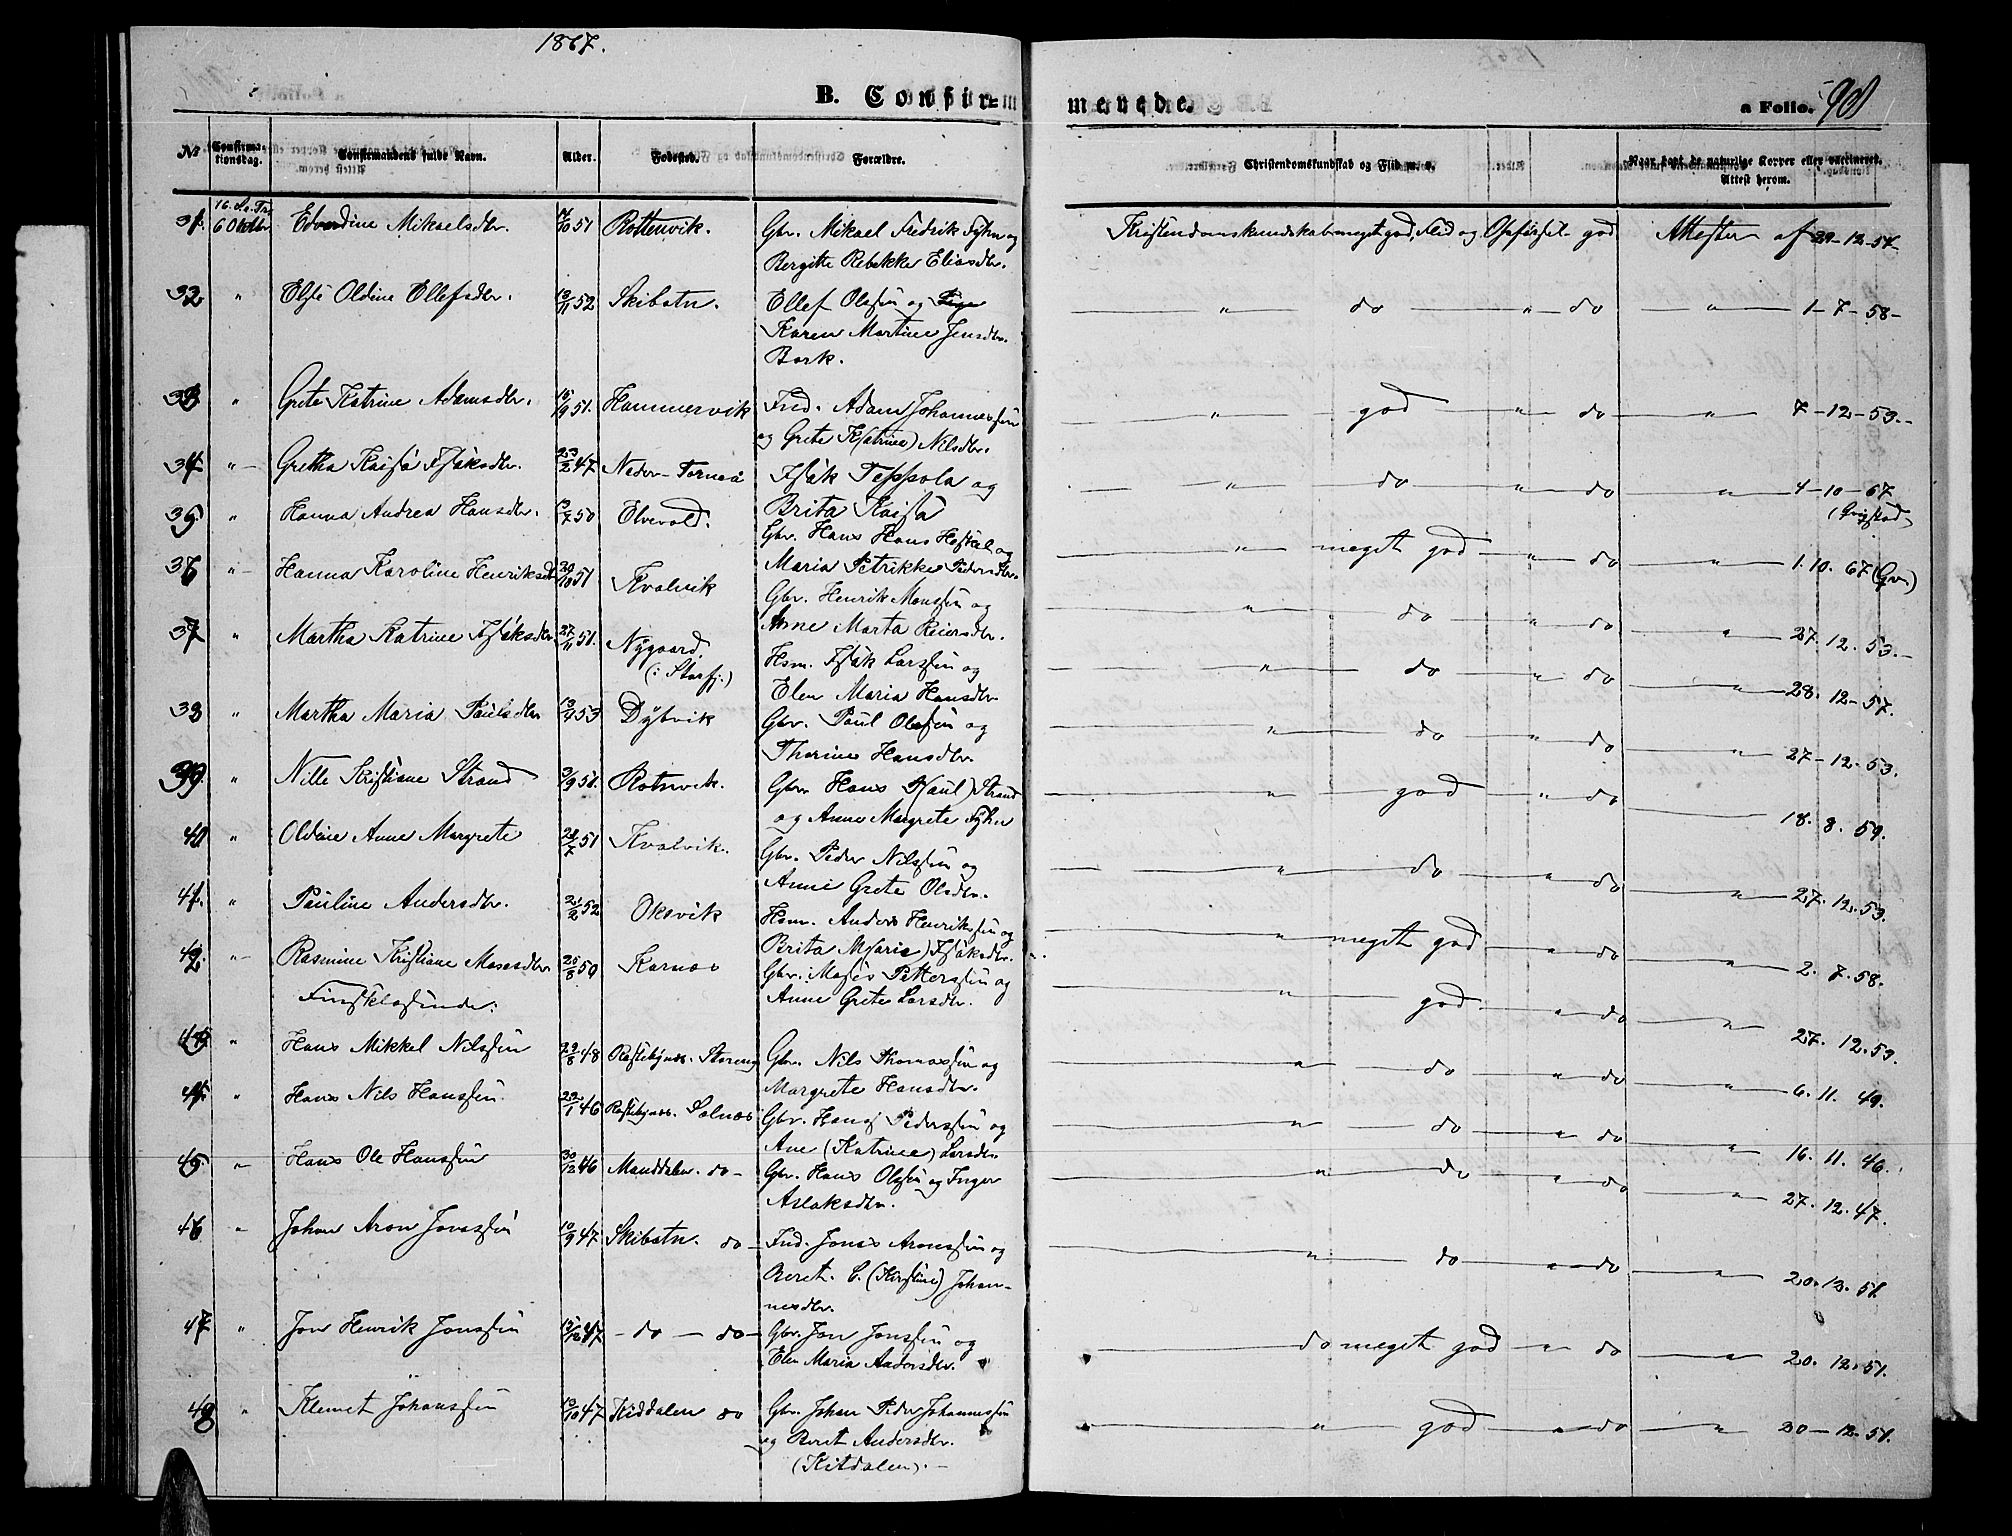 1867.
B. Confir=
menede.
a Folio. 90
No
Confirma-
tionsdag.
Confirmandens fulde Navn.
Alder.
Fødested.
Forældre.
Christendomskundskab og Flid m. v.
Naar havt de naturlige Kopper eller vaccineret.
Attest herom.
31. 16. S. e. Tr.
6 Oktbr. Edvardine Mikaelsdtr. 51 Rottenvik. Gbr. Mikael Fredrik Fyhn og
Bergitte Rebekka Eliasdtr.
Kristendomskundskab meget god, Flid og Opførsel god Attester af 29-12-54
32 " Else Oldine Ellefsdtr. 13/11 52 Skibotn. Ellef Olssen og
Karen Martine Jensdtr.
Bork.
" do " do " 1-7-58-
33 " Grete Katrine Adamsdtr. 15/9 51. Hammervik Fud. Adam Johannessen
og Grete K(atrine) Nilsdtr.
" god " do " 7-12-53.-
34 " Gretha Kaisa Isaksdtr. 23/2 47 Neder-Torneå Isak Teppola og
Brita Kaisa
" do " do " 4-10-67
(Qvigstad)
35. " Hanna Andrea Hansdtr. 50 Elvevold. Gbr. Hans Hans og
Maria Petrikke Pedersdtr.
" meget god " do " 1.10.67 (Qv.)
36 " Hanna Karoline Henriksdtr 51 Kvalvik Gbr. Henrik Monssen og
Anne Marta Reiersdtr.
" do " do " 27.12.53.-
37 " Martha Katrine Isaksdtr. 27/11 51. Nygaard.
(: Storfj.) Hsm. Isak Larssen og
Elen Maria Hansdtr
" do " do " 28.12-57.
38 " Martha Maria Paulsdtr 53 Dybvik Gbr. Paul Olssen og
Therine Hansdtr.
" do " do " 27-12.53.
39. " Nille Kristiane Strand 51. Rotnvik. Gbr. Hans P(aul) Strand
og Anne Margrete Fyhn
" god " do 18.8.59.
40 " Oldine Anne Margrete 51 Kvalvik. Gbr. Peder Nilssen og
Anne Grete Olsdtr.
" do " do " 27.12.53.
41. " Pauline Andersdtr. 52 Oksvik Hsm. Anders Henrikssen og
Brita M(aria) Isaksdtr.
" meget god " do " 2.7.58.
42 " Rasmine Kristiane Mosesdtr 25/8 50 Karnes Gbr. Moses Petterssen og
Anne Grete Larsdtr.
" god " do " 27.12.53.
Finsklæsende:
" Hans Mikkel Nilssen 48 Røstebynes. Storeng Gbr. Nils Thomassen og
Margrete Hansdtr.
" do " do " 6.11.49.
44. " Hans Nils Hanssen 46 Røstebynes. Solnes Gbr. Hans Pederssen og
Ane (Katrine) Larsdtr
" do " do " 16.11.46.
45. " Hans Ole Hanssen 30/12 46 Manddalen. do- Gbr. Hans Olssen og Inger
Aslaksdtr.
" do " do " 27.12.47.
46 " Johan Aron Jonassen 10/9 47 Skibotn. do- Fud. Jonas Aronssen og
Beret. C. (Kirstine) Johan-
nesdtr.
" do " do " 20.12.51.
47 " Jon Henrik Jonssen 47 - do - do- Gbr. Jon Jonssen og
Elen Maria Andersdtr.
do meget god " do " 20.12.51.
48 " Klemet Johanssen 47 Kiddalen do Gbr. Johan Peder Johannessen
og Beret Andersdtr.
(Kitdalen).-
" god " do " 20-12-51.